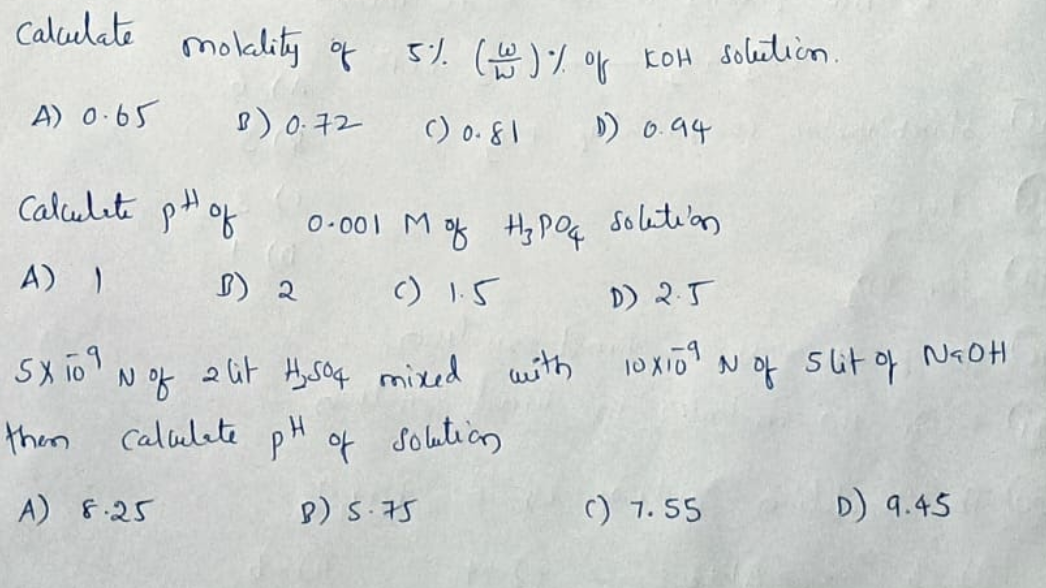 Calculate molality of 5% (w/w)% of KOH solution.
A) 0.65 B) 0.72 C) 0.81 D) 0.94
Calculate pH of 0.001 M of H₃PO₄ solution
A) 1 B) 2 C) 1.5 D) 2.5
5×10⁻⁹ N of 2 lit H₂SO₄ mixed with 10×10⁻⁹ N of 5 lit of NaOH
then calculate pH of solution
A) 8.25 B) 5.75 C) 7.55 D) 9.45